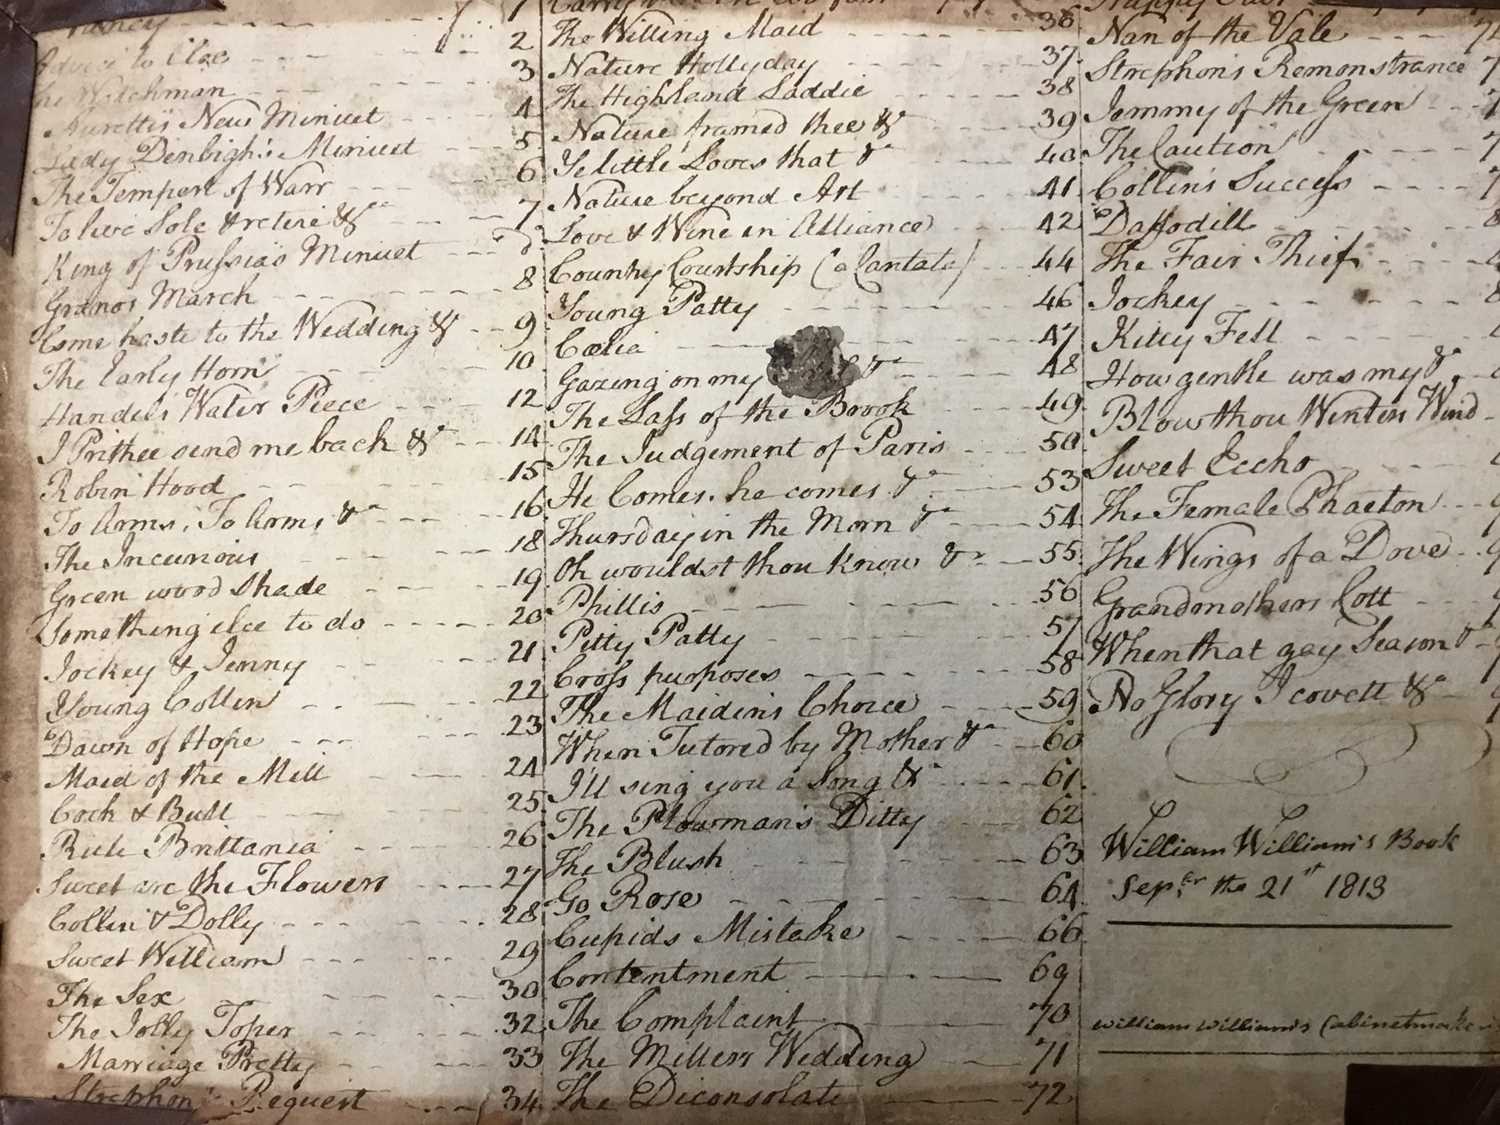 2
Advice to Cloe 3
The Watchman 4
Nurettis New Minuet 5
Lady Denbigh's Minuet 6
The Tempest of Warr 7
To live Sole & retire &c
King of Prussias Minuet 8
Granos March 9
Come haste to the Wedding &c 10
The Early Horn
Handels Water Peece 12
I Prithee send me back &c 14
Robin Hood 15
To Arms, To Arms, &c 16
The Incurious 18
Green wood Shade 19
Something else to do 20
Jockey & Jenny 21
Young Collin 22
Dawn of Hope 23
Maid of the Mill 24
Cock & Bull 25
Rule Brittania 26
Sweet are the Flowers 27
Collin & Dolly 28
Sweet William 29
The Sex 30
The Jolly Toper 32
Marriage Pretty 33
Strephons Request 34
The Willing Maid 36
Nature Hollyday 37
The Highland Laddie 38
Nature framed thee &c 39
Ye little Loves that &c 40
Nature beyond Art 41
Love & Wine in Alliance 42
Country Courtship (a Cantata) 44
Young Patty 46
Cœlia 47
Gazing on my &c 48
The Lass of the Brook 49
The Judgement of Paris 50
He Comes, he comes &c 53
Thursday in the Morn &c 54
Oh wouldst thou know &c 55
Phillis 56
Pitty Patty 57
Cross purposes 58
The Maidens Choice 59
When Tutored by Mother &c 60
I'll sing you a Song &c 61
The Plowman's Ditty 62
The Blush 63
Go Rose 64
Cupids Mistake 66
Contentment 69
The Complaint 70
The Millers Wedding 71
The Diconsolate 72
Nan of the Vale
Strephon's Remonstrance
Jemmy of the Green
The Caution
Collin's Success
Daffodill
The Fair Thief
Jockey
Kitty Fell
How gentle was my &c
Blow thou Winters Wind
Sweet Eccho
The Female Phaeton
The Wings of a Dove
Grandmothers Cott
When that gay Season &c
No Glory I covett &c
William William's Book
Sepr the 21st 1813
William William's Cabinetmaker